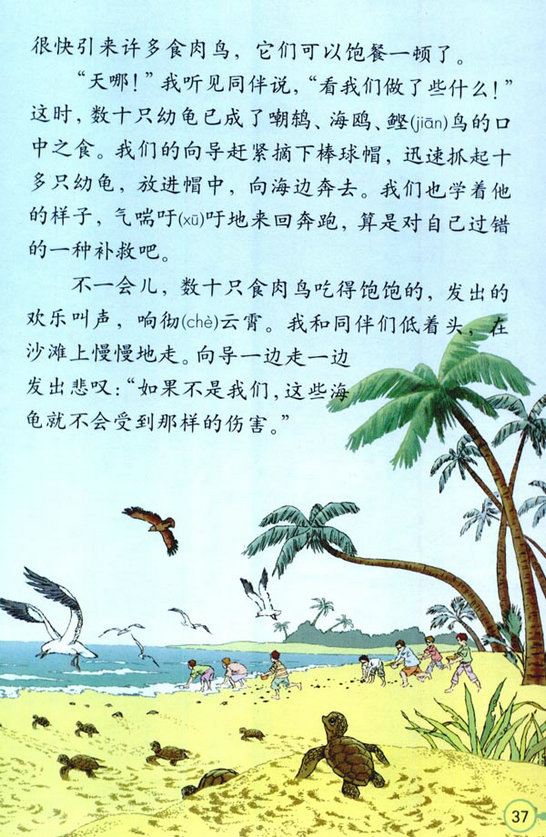 很快引来许多食肉鸟，它们可以饱餐一顿了。
“天哪！”我听见同伴说，“看我们做了些什么！”
这时，数十只幼龟已成了嘲鸫、海鸥、鲣(jiān)鸟的口
中之食。我们的向导赶紧摘下棒球帽，迅速抓起十
多只幼龟，放进帽中，向海边奔去。我们也学着他
的样子，气喘吁(xū)吁地来回奔跑，算是对自己过错
的一种补救吧。
不一会儿，数十只食肉鸟吃得饱饱的，发出的
欢乐叫声，响彻(chè)云霄。我和同伴们低着头，在
沙滩上慢慢地走。向导一边走一边
发出悲叹：“如果不是我们，这些海
龟就不会受到那样的伤害。”
37